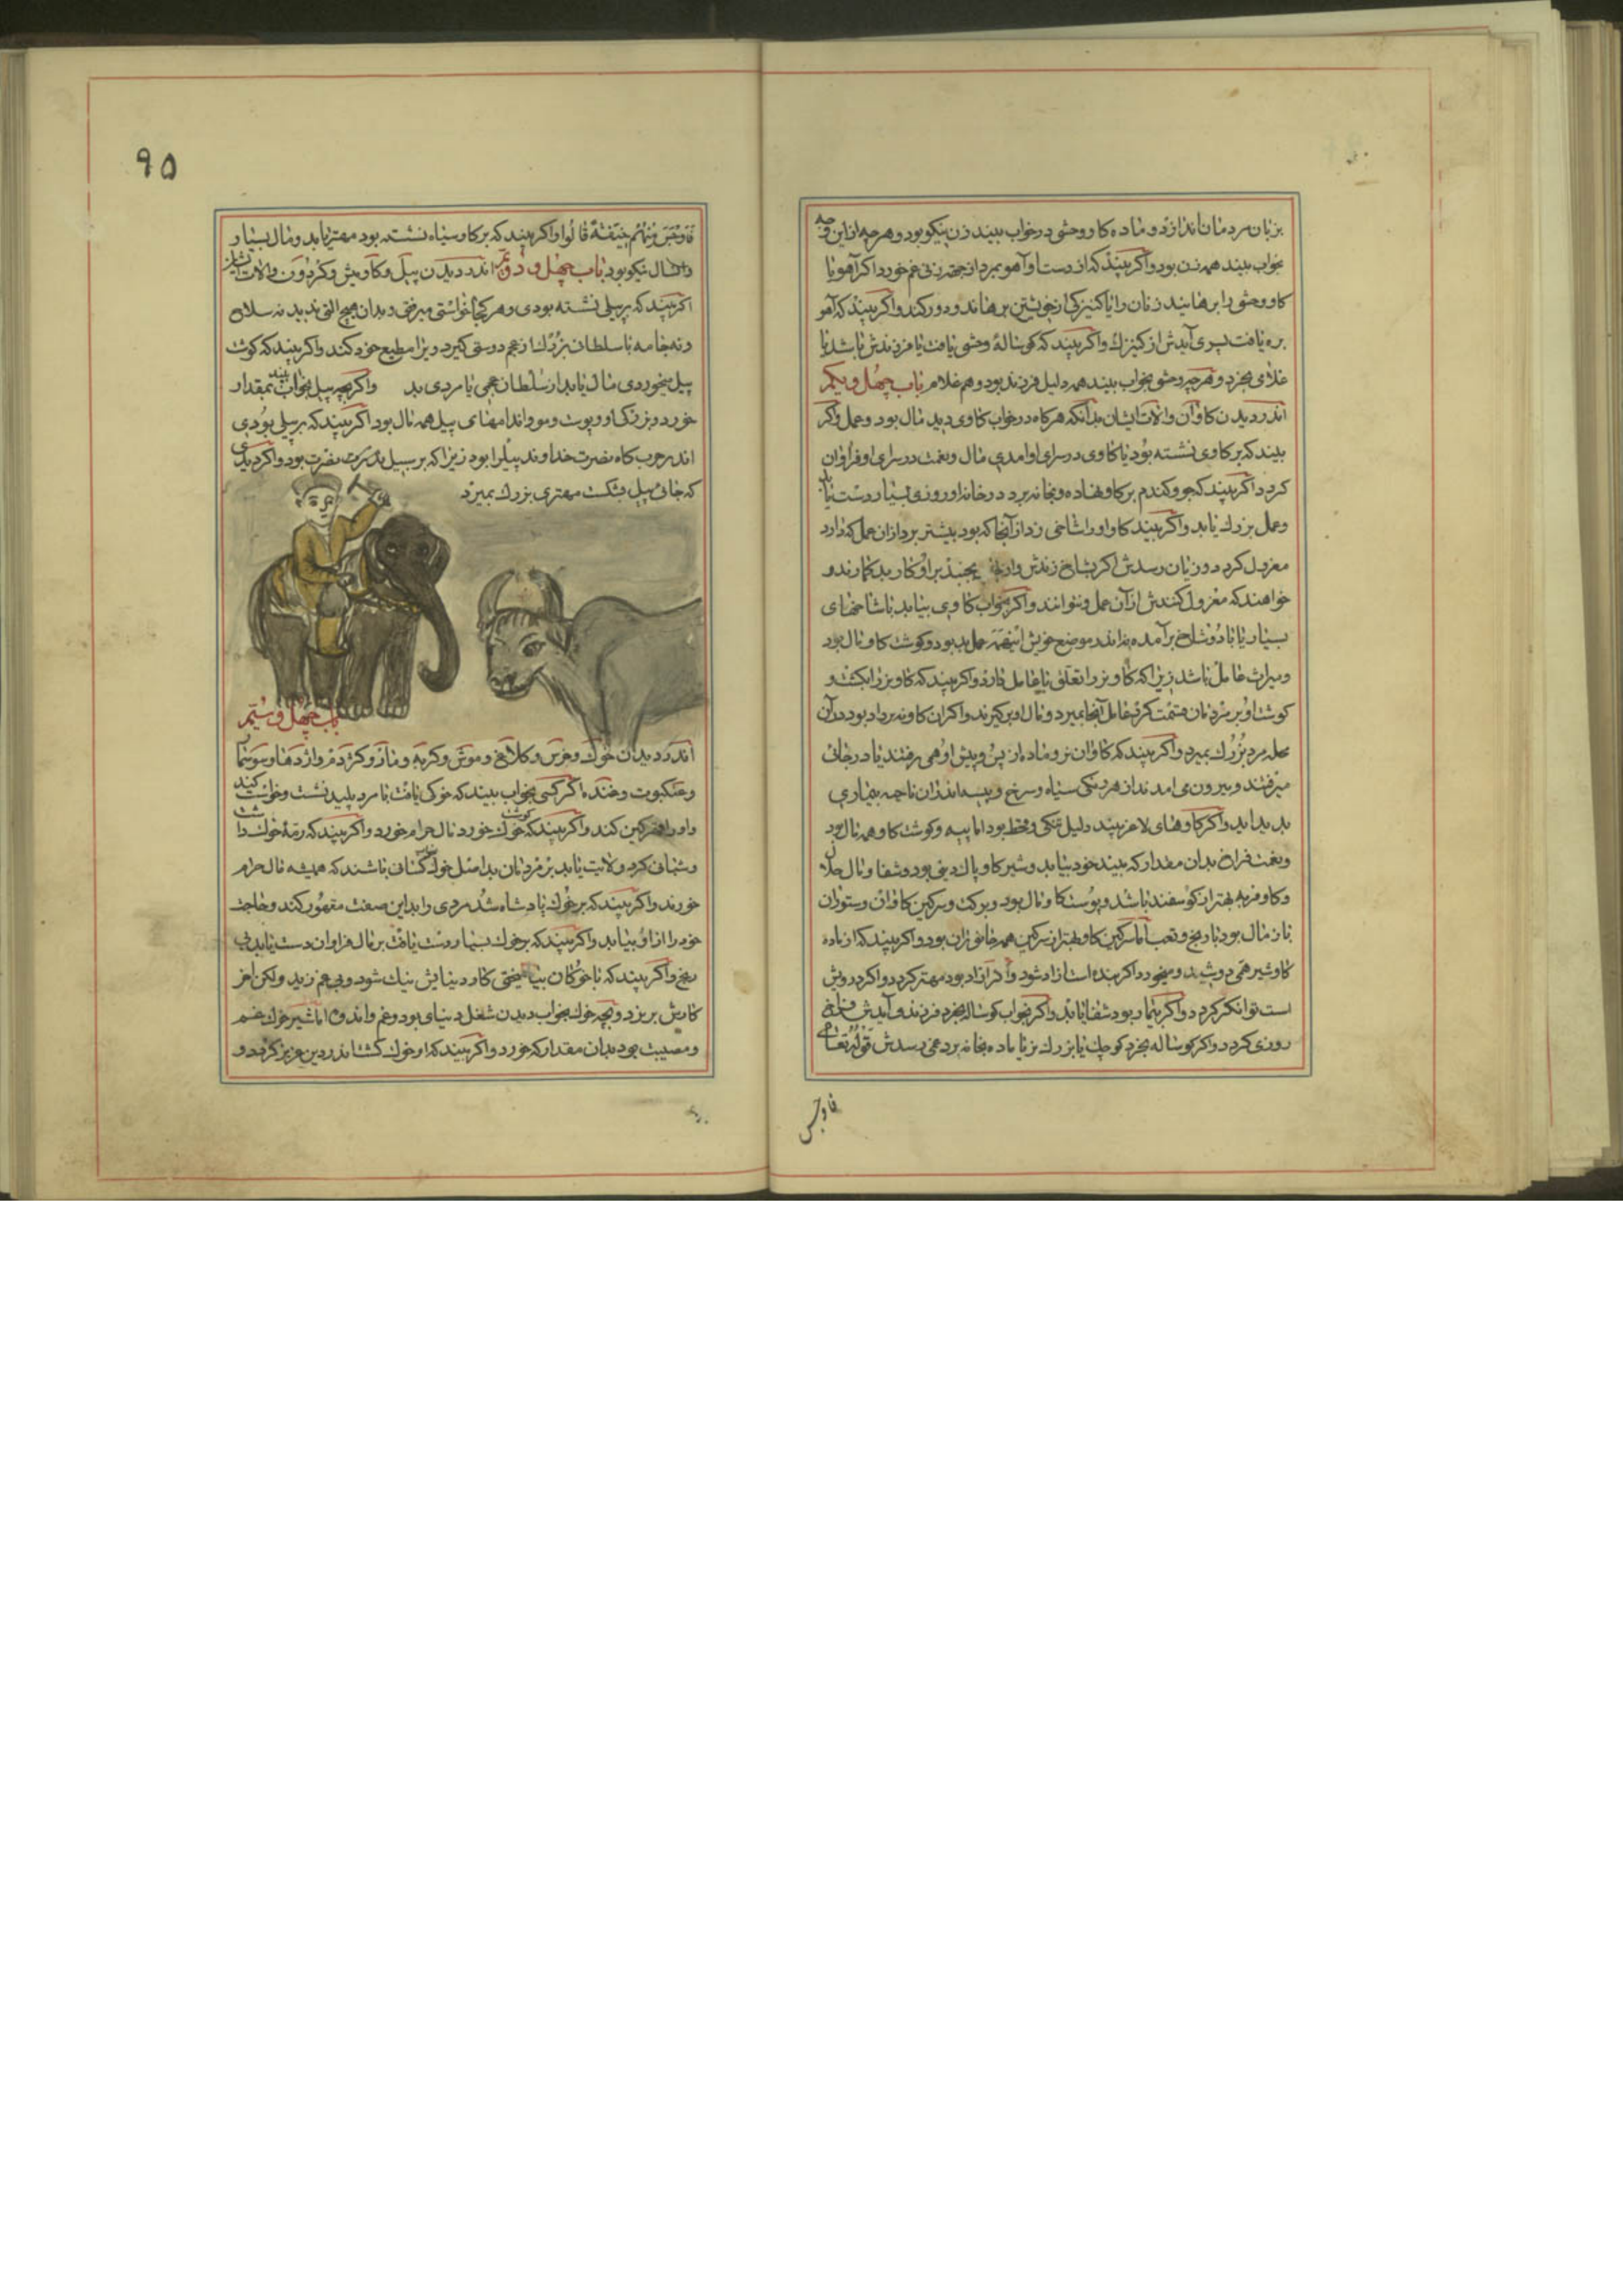 بزبان مردمان اندازد و ماده کاو وحشی در خواب بیند زن نیکو بود و هر چه از این وجه
بخواب بیند همه زن بود و اکر بیند که از دست او آهو بمرد از جهة زنی غم خورد اکر آهو یا
کاو وحشی را برهانید زنان را یا کنیزکی از خویشتن برهاند و دور کند و اکر بیند که آهو
بره یافت پسری آیدش از کنیزک و اکر بیند که کوسالهٔ وحشی یافت یا فرزندش باشد یا
غلامی بخرد و هر چه وحشی بخواب بیند همه دلیل فرزند بود و هم غلام باب چهل و یکم
اندر دیدن کاوان و آلات ایشان بدانکه هرکاه در خواب کاوی دید مال بود و عمل و اکر
بیند که بر کاوی نشسته بود یا کاوی در سرای او آمدی مال و نعمت در سرای او فراوان
کردد اکر بیند که جو و کندم بر کاو نهاده و بخانه برد در خانه او روزی بسیار دست یابد
و عمل بزرک یابد و اکر بیند کاو او را شاخی زد از آنجا که بود بیشتر برد از آن عمل که دارد
معزول کردد و زیان رسدش اکر بشاخ زندش و از جای بجنبد بر او کار بد کمارند و
خواهند که معزول کنندش از آن عمل و نتوانند و اکر بخواب کاوی بیابد با شاخهای
بسیار یا با دو شاخ برآمده بداند موضع خویش اینهمه عمل بد بود و کوشت کاو مال بود
و میراث عامل باشد زیرا که کاو نر را تعلق با عامل دارد و اکر بیند که کاو نر را بکشت و
کوشت او بر مردمان قسمت کرد عامل آنجا بمیرد و مال او برکیرند و اکر آن کاو نه برداد بود در آن
محله مرد بزرک بمیرد و اکر بیند که کاوان نر و ماده از پس و پیش او همی رفتند یا در جائی
میرفتند و بیرون می آمدند از هر رنکی سیاه و سرخ و پیسه اندر آن ناحیه بیماری
بد پدید آید و اکر کاوهای لاغر بیند دلیل تنکی و قحط بود اما پیه و کوشت کاو همه مال بود
و نعمت فراخ بدان مقدار که بیند خود بیابد و شیر کاو پاک دینی بود و شفا و مال حلال
و کاو فربه بهتر از کوسفند باشد و پوست کاو مال بود و برکت و سرکین کاوان و ستوران
باز مال بود با رنج و تعب اما سرکین کاو بهتر از سرکین همه جانوران بود و اکر بیند که از ماده
کاو شیر همی دوشید و میخورد اکر بنده است آزاد شود و اکر آزاد بود مهتر کردد و اکر درویش
است توانکر کردد و اکر بیمار بود شفا یابد و اکر بخواب کوساله بخرد فرزند و آیدش فراخ
روزی کردد و اکر کوساله بخرد کوچک یا بزرک نر یا ماده بخانه برد غمی رسدش قوله تعالی
فاوجس
۹۵
فَاَوْجَسَ مِنْهُمْ خِیفَةً قالُوا و اکر بیند که بر کاو سیاه نشسته بود مهتر یابد و مال بسیار
و آنسال نیکو بود باب چهل و دوم اندر دیدن پیل و کاومیش و کردون و آلات ایشان
اکر بیند که بر پیلی نشسته بودی و هر کجا خواستی میرفتی و بدان هیچ آلتی ندید نه سلاح
و نه جامه با سلطان بزرک از عجم دوستی کیرد و یرا مطیع خود کند و اکر بیند که کوشت
پیل میخوردی مال یابد از سلطان عجمی یا مردی بد و اکر بچه پیل بخواب بیند بمقدار
خورد و بزرکی او و پوست و مو و اندامهای پیل همه مال بود اکر بیند که بر پیلی بودی
اندر حرب کاه نصرت خداوند پیلرا بود زیرا که بر پیل نصرت بود و اکر دیدی
که جائی پیل بشکست مهتری بزرک بمیرد
باب چهل و سیم
اندر دیدن خوک و خرس و کلاغ و موش و کربه و مار و کژدم و اژدها و سوسمار
و عنکبوت و خنده اکر کسی بخواب بیند که خوکی یافت با مرد پلید نشست و خواست کند
و او را غمکین کند و اکر بیند که کوشت خوک خورد مال حرام خورد و اکر بیند که رمهٔ خوک را
و شبانی کرد ولایت یابد بر مردمان بد اصل خوک کسانی باشند که همیشه مال حرام
خورند و اکر بیند که بر خوک پادشاه شد مردی را بداین صفت مقهور کند و حاجت
خود را از او بیابد و اکر بیند که بر خوک بسیار دست یافت بر مال فراوان دست یابد بی
رنج و اکر بیند که با خوکان بیامیختی کار دنیایش نیک شود و بی غم زید ولکن آخر
کارش بریزد و بچه خوک بخواب دیدن شغل دنیای بود و غم و اندوه اما شیر خوک غم
و مصیبت بود بدان مقدار که خورد و اکر بیند که او خوک کشت اندر دین عزیز کردد و